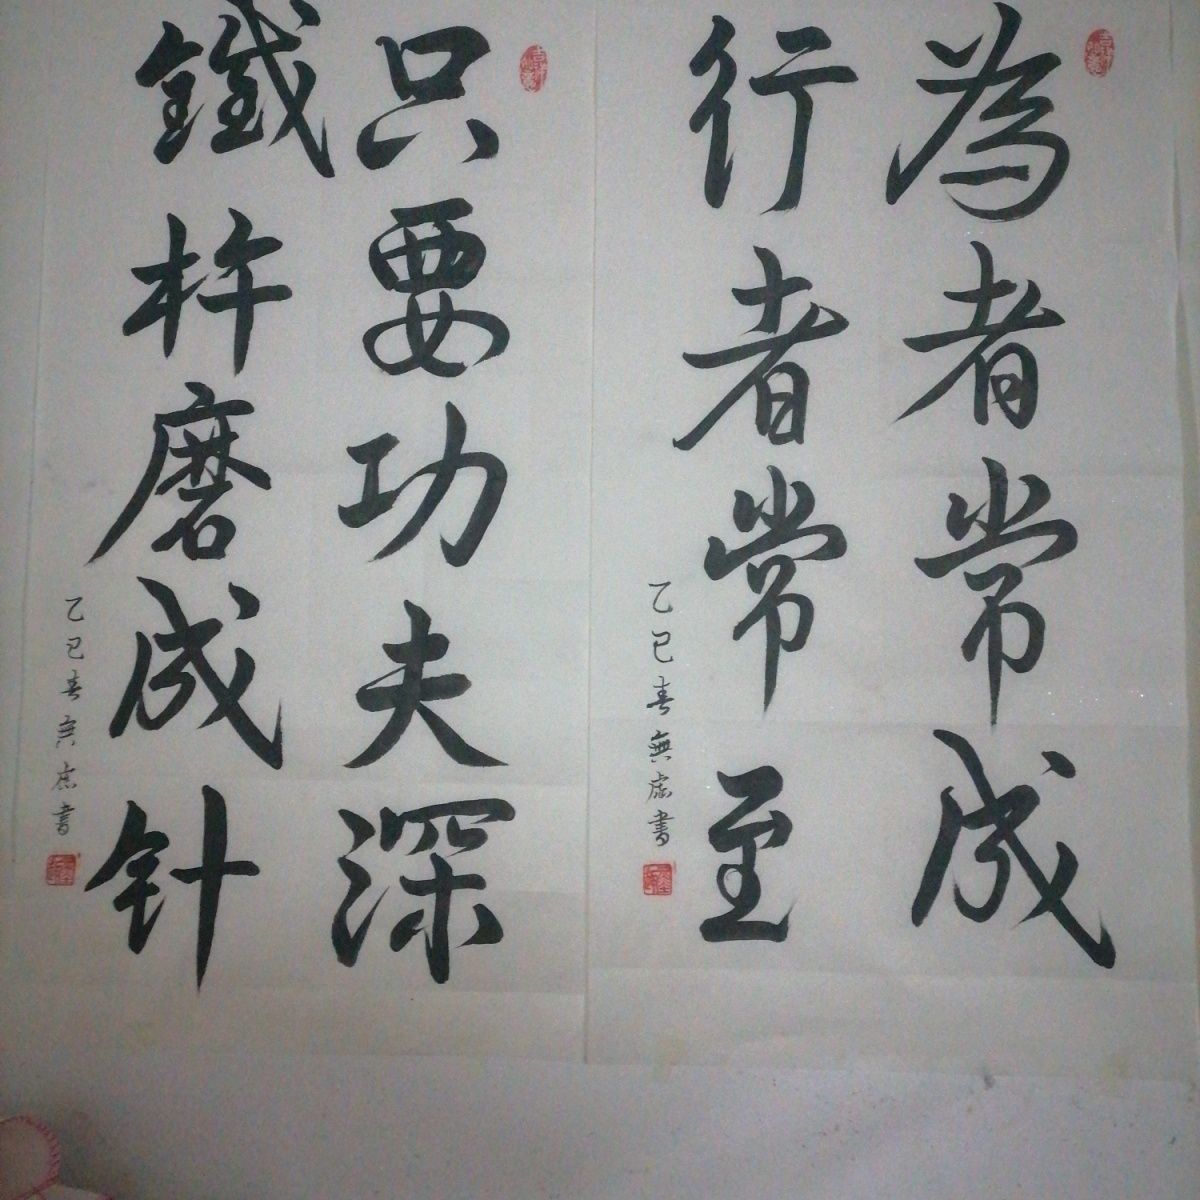 為者常成
行者常至
乙巳春無虚書
只要功夫深
鐵杵磨成针
乙巳春
书